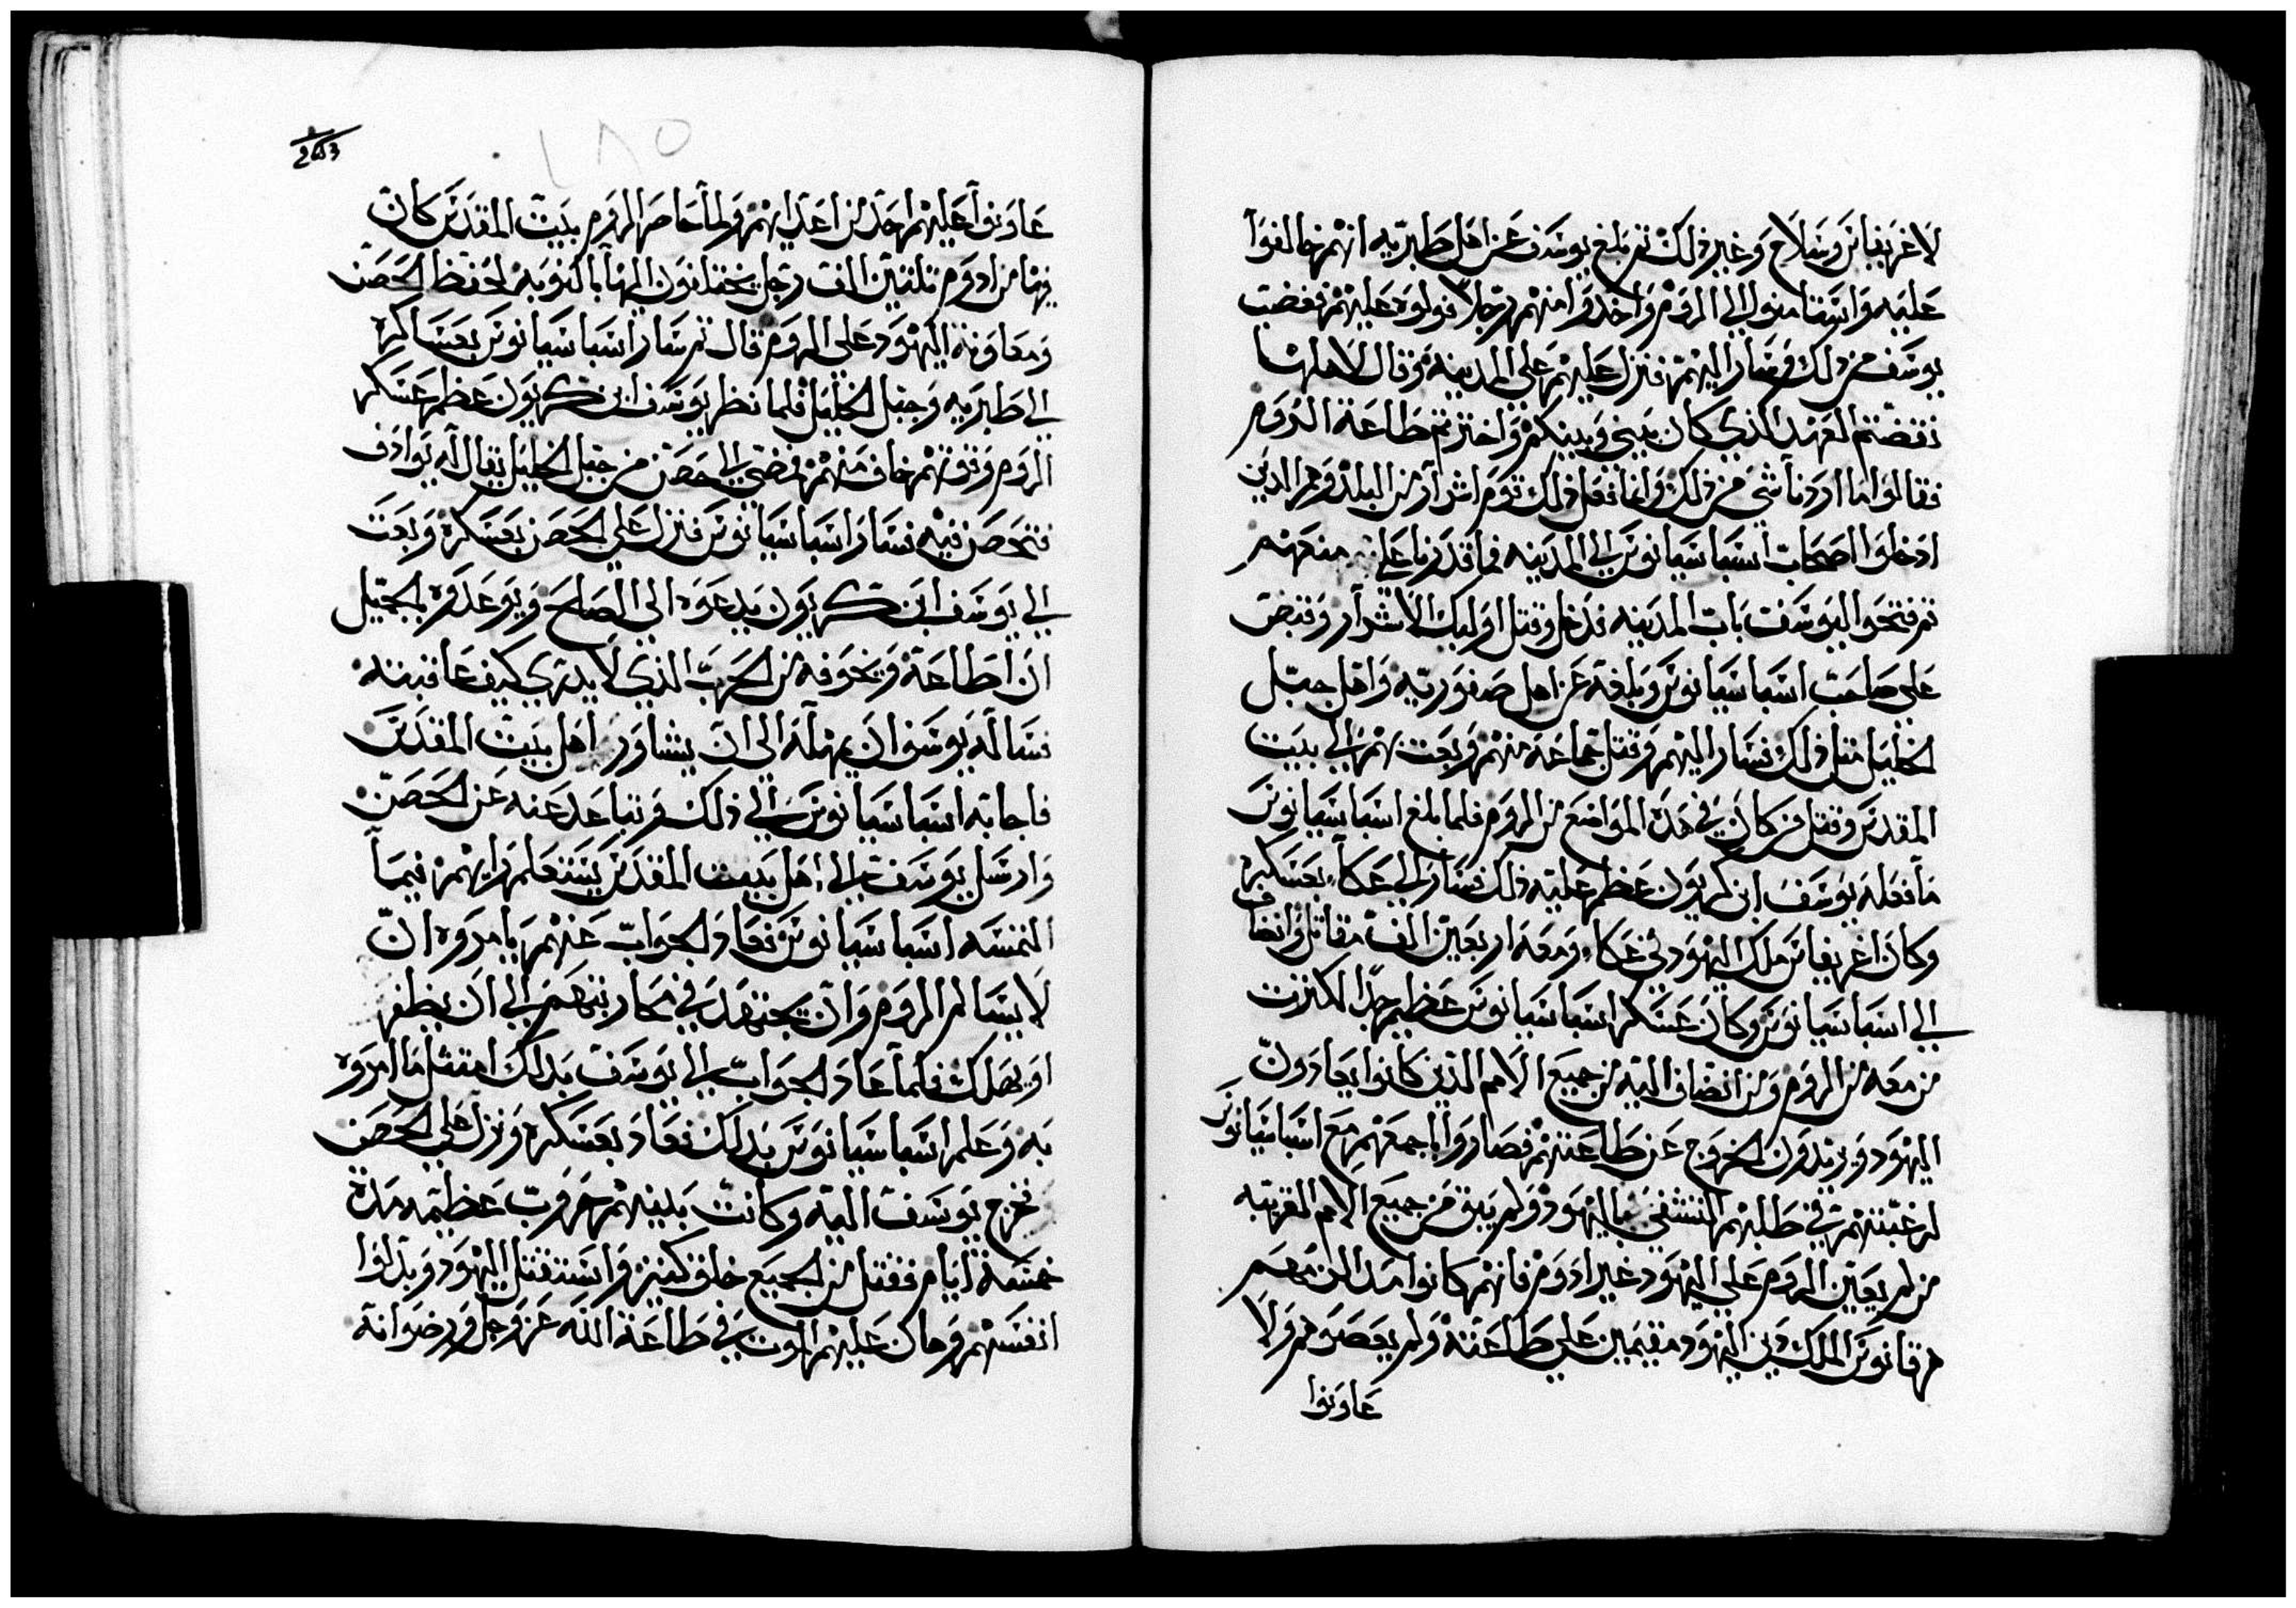 لاغريفاس وسلاح وغير ذلك ثم بلغ يوسف عن اهل طبريه انهم خالفوا
عليه واستامنوا الي الروم واخذوا منهم رجلا فولوه عليهم فغضب
يوسف من ذلك وسار اليهم فنزل عليهم علي المدينة وقال لاهلها
نقضتم العهد الذي كان بيني وبينكم واخترتم طاعة الروم
فقالوا ما اردنا شي من ذلك وانما فعل ذلك قوم اشرار من البلد وهم الدين
ادخلوا اصحاب اسباسيانوس الي المدينه فما قدرنا علي منعهم
ثم فتحوا ليوسف باب المدينه فدخل وقتل اوليك الاشرار وقبض
علي صاحب اسباسيانوس وبلغه عن اهل صفوريه واهل جبل
الخليل مثل ذلك فسار اليهم وقتل جماعة منهم وبعت بهم الي بيت
المقدس وقتل من كان في هذه المواضع من الروم فلما بلغ اسباسيانوس
ما فعله يوسف ابن كريون عظم عليه ذلك فسار الي عكا بعسكره
وكان اغريفاس ملك اليهود في عكا ومعه اربعين الف مقاتل وانضاف
الي اسباسيانوس وكان عسكر اسباسيانوس عظيم جدا لكترت
من معه من الروم ومن انضاف اليه من جميع الامم الذين كانوا يعادون
اليهود ويريدون الخروج عن طاعتهم فصاروا باجمعهم مع اسباسيانوس
لرغبتهم في طلبهم التشفي باليهود ولم يبق من جميع الامم القريبه
من لم يعين الروم علي اليهود غير ادوم فانهم كانوا مدالزمهم
هرقانوس الملك دين اليهود مقيمين علي طاعته ولم يعصوهم ولا
عاونوا
عاونوا عليهم احد من اعدايهم ولما حاصر الروم بيت المقدس كان
فيها من ادوم تلتين الف رجل يختلفون اليها بالنوبه لحفظ الحصن
ومعاونة اليهود علي الروم قال ثم سار اسباسيانوس بعساكره
الي طبريه وجبل الخليل فلما نظر يوسف ابن كريون عظم عسكر
الروم وقوتهم خاف منهم فمضي الي حصن من جبل الخليل يقال له يوادف
فتحصن فيه فسار اسباسيانوس فنزل علي الحصن بعسكره وبعت
الي يوسف ابن كريون يدعوه الي الصلح ويوعده بالجميل
ان اطاعة ويخوفه من الحرب الذي لا يدري كيف عاقبته
فساله يوسف ان يمهله الي ان يشاور اهل بيت المقدس
فاجابه اسباسيانوس الي ذلك وتباعد عنه عن الحصن
وارسل يوسف الي اهل بيت المقدس يستعلم رايهم فيما
التمسه اسباسيانوس فعاد الجواب عنهم يامروه ان
لا يسالم الروم وان يجتهد في محاربتهم الي ان يظفر
او يهلك فلما عاد الجواب الي يوسف بدلك امتثل ما امروه
به وعلم اسباسيانوس بدلك فعاد بعسكره ونزل علي الحصن
فخرج يوسف اليه وكانت بينهم حروب عظيمه مدة
خمسة ايام فقتل من الجميع خلق كتير واستقتل اليهود وبدلوا
انفسهم وهان عليهم الموت في طاعة الله عز وجل ورضوانه